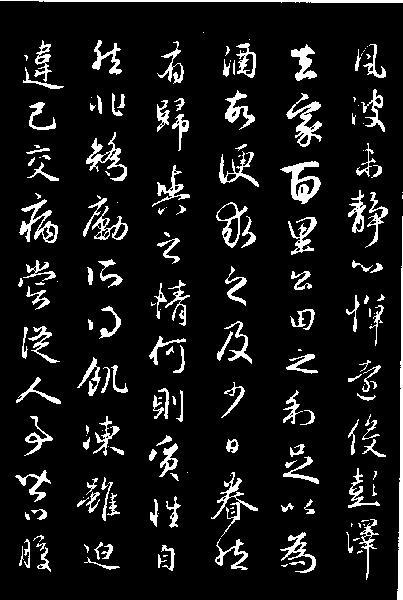 風波未靜心憚遠役彭澤
去家百里公田之利足以為
酒故便求之及少日眷然
有歸與之情何則質性自
然非矯勵所得飢凍雖迫
違己交病嘗從人事皆口腹